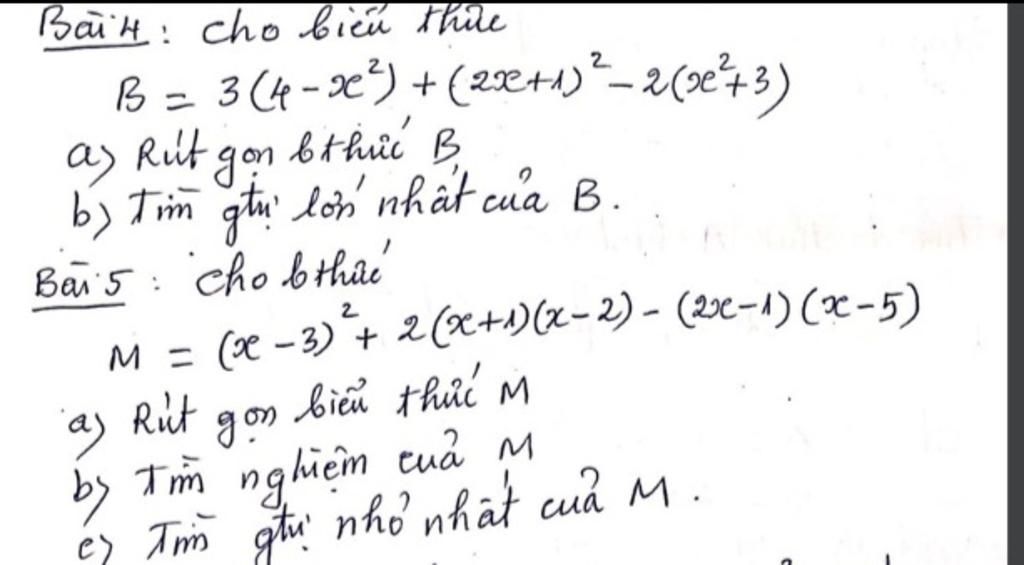 Bài 4 : Cho biểu thức
B = 3(4 - x²) + (2x+1)² - 2(x²+3)
a) Rút gọn bthức B
b) Tìm gtrị lớn nhất của B.
Bài 5 : Cho bthức
M = (x - 3)² + 2(x+1)(x-2) - (2x-1)(x-5)
a) Rút gọn biểu thức M
b) Tìm nghiệm của M
c) Tìm gtrị nhỏ nhất của M.